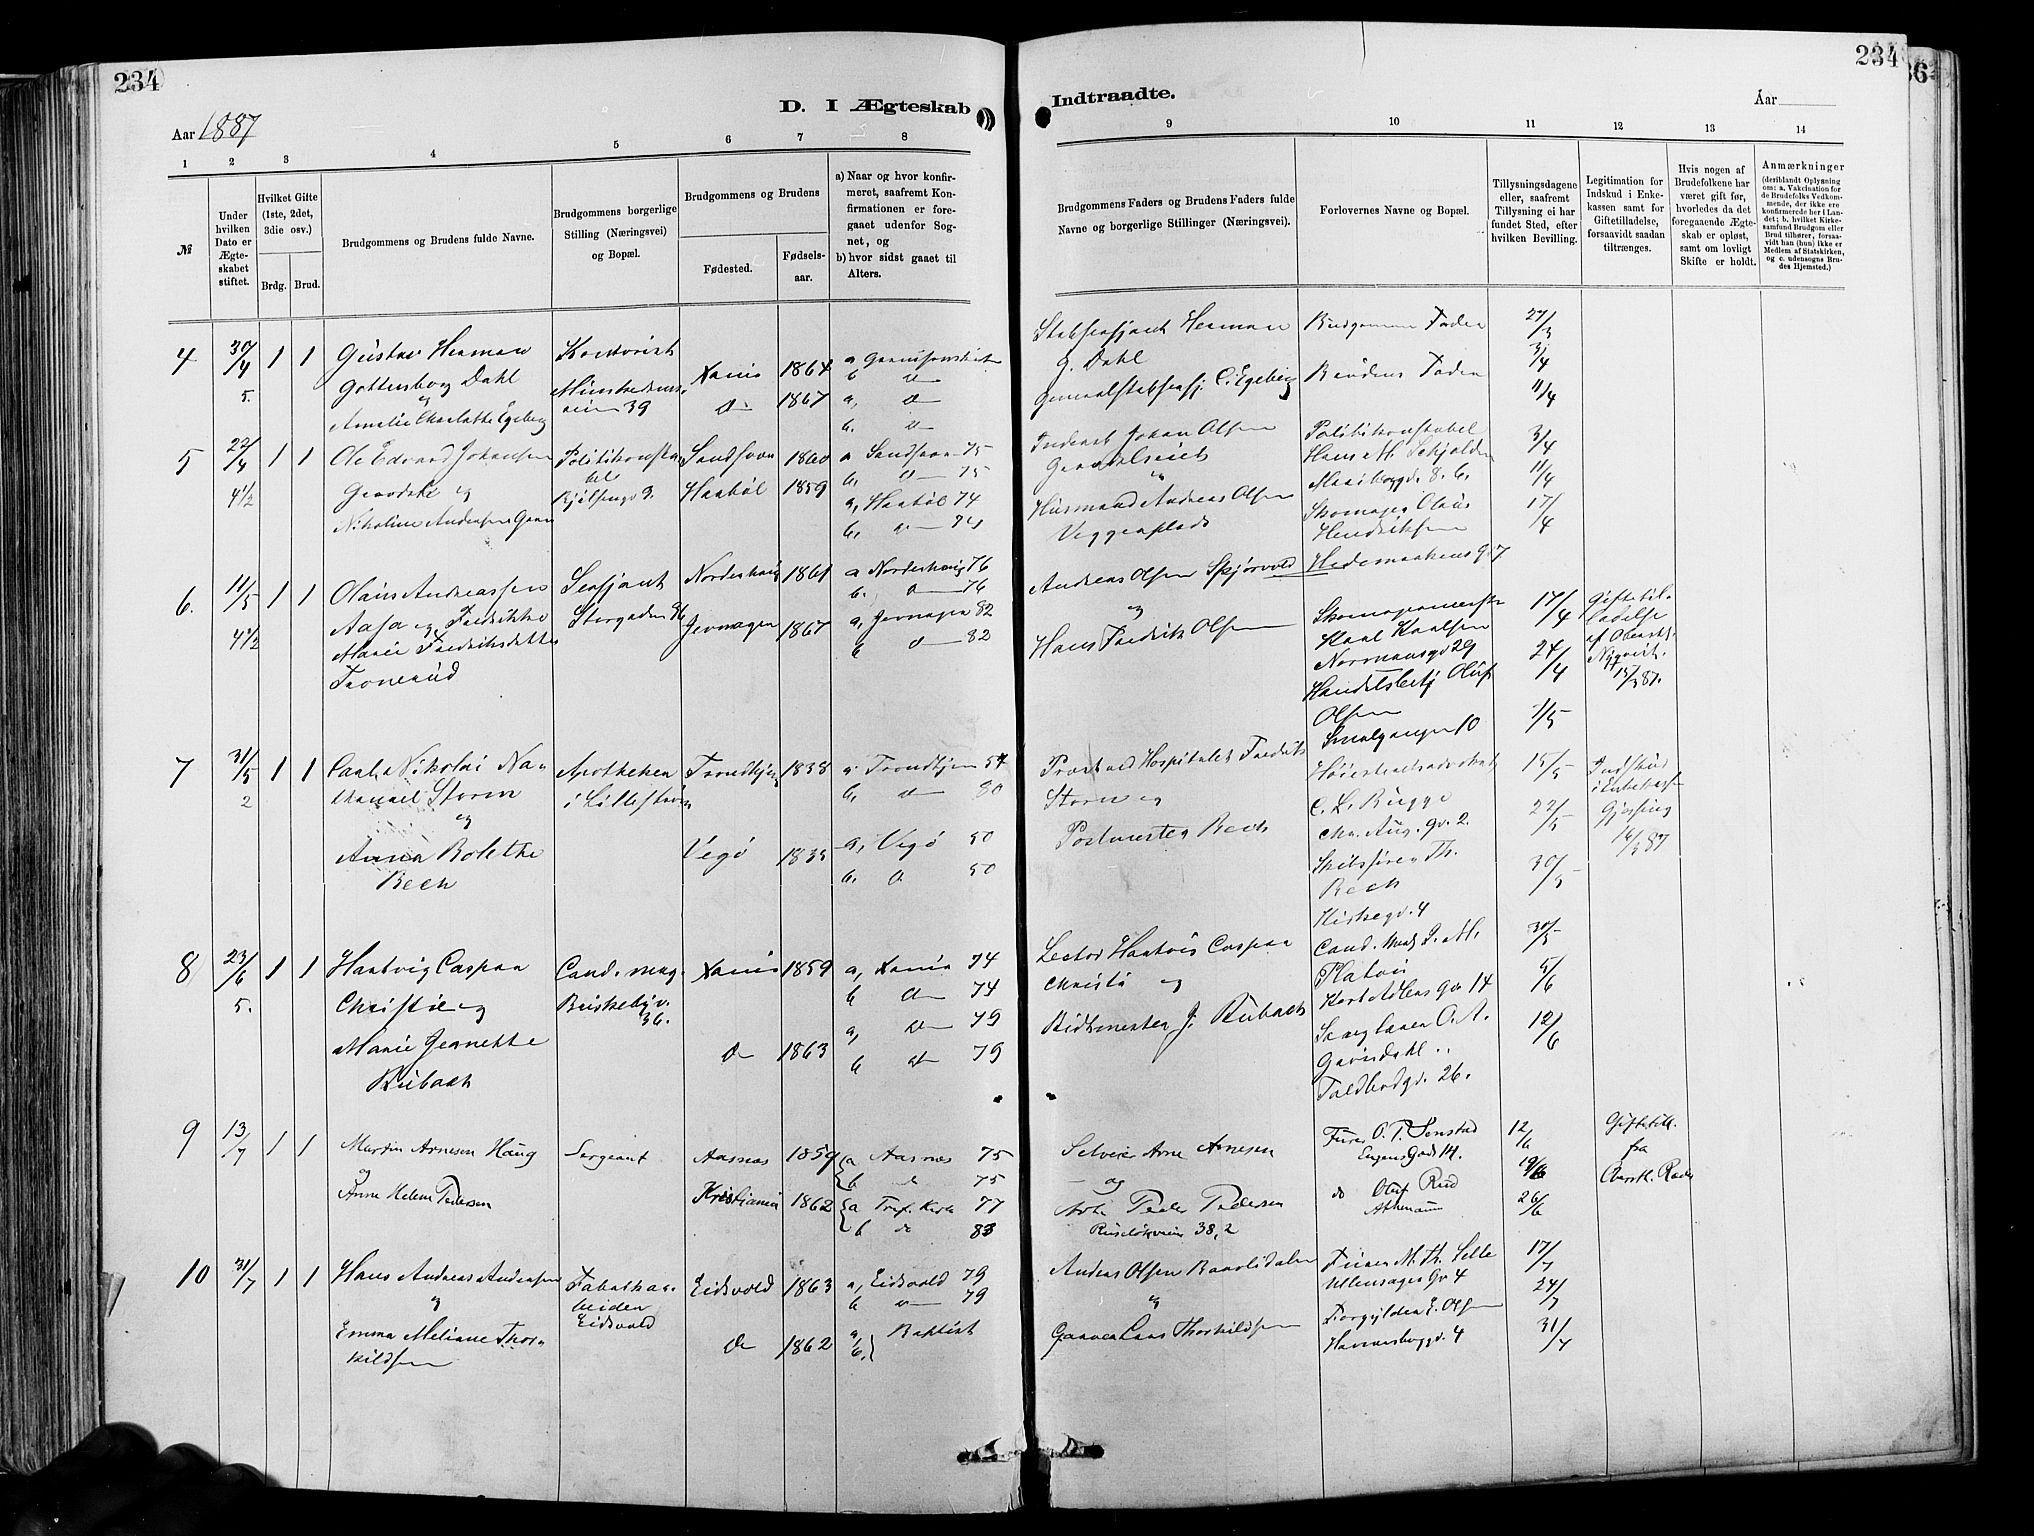 234
234
36
D. I Ægteskab
Indtraadte.
Aar 1887
Aar
1 2 3 4 5 6 7 8
9 10 11 12 13 14
№
Under
hvilken
Dato er
Ægte-
skabet
stiftet.
Hvilket Gifte
(1ste, 2det,
3die osv.)
Brdg. Brud.
Brudgommens og Brudens fulde Navne.
Brudgommens borgerlige
Stilling (Næringsvei)
og Bopæl.
Brudgommens og Brudens
Fødested.
Fødsels-
aar.
a) Naar og hvor konfir-
meret, saafremt Kon-
firmationen er fore-
gaaet udenfor Sog-
net, og
b) hvor sidst gaaet til
Alters.
Brudgommens Faders og Brudens Faders fulde
Navne og borgerlige Stillinger (Næringsvei).
Forlovernes Navne og Bopæl.
Tillysningsdagene
eller, saafremt
Tillysning ei har
fundet Sted, efter
hvilken Bevilling.
Legitimation for
Indskud i Enke-
kassen samt for
Giftetilladelse,
forsaavidt saadan
tiltrænges.
Hvis nogen af
Brudefolkene har
været gift før,
hvorledes da det
foregaaende Ægte-
skab er opløst,
samt om lovligt
Skifte er holdt.
Anmærkninger
(deriblandt Oplysning
om: a. Vakcination for
de Brudefolks Vedkom-
mende, der ikke ere
konfirmerede her i Lan-
det; b. hvilket Kirke-
samfund Brudgom eller
Brud tilhører, forsaa-
vidt han (hun) ikke er
Medlem af Statskirken,
og c. udensogns Bru-
des Hjemsted.)
4 30/4 1 1 Gustav Herman
Gottenborg Dahl
og
Amalie Charlotte Egeberg
5.
39
Xania 1864
do 1867
a
b do
a, do
b. do
G. Dahl
C. Egeberg
Brudgommens Fader
Brudens Fader
27/3
3/4
11/4
5 22/4 1 1 Ole Edvard Johansen
og
Nikoline Andersen
4 1/2
Sandsvær 1860
1859
a Sandsvær 75
b. do 75
a, 74
b, do 74
Inderst Johan Olsen
og
Husmand Andreas Olsen
Politikonstabel
Hans M.
Skomager Olaus
Hendriksen
Hedemarkens gd 7
3/4
11/4
17/4
6. 11/5 1 1 Olaus Andreassen
Aasa og Fredrikke
Marie Fredriksdatter
Tronerud
4 1/2
Sersjant
Storgaden 36
Norderhaug 1861
Jevnager 1867
a Norderhaug 76
b. do 76
a, Jevnager 82
b do 82
Andreas Olsen Spjørvold
og
Hans Fredrik Olsen
Skomagermester
Karl Karlsen
Normansgd 29
Handelsbetj Oluf
Olsen
Smalgangen 10
17/4
24/4
1/5
Giftetil-
ladelse
af Oberstl.
Nyqvist
7 31/5 1 1 Carl Nikolai Na-
thanael Storm
og
Anna Bolethe
Bech
2
Apotheker
i Lillestrøm
Trondhjem 1838
Vegø
a Trondhjem 54
b, do 80
a, Vegø 50
b, do 50
Præst ved Hospitalet Fredrik
Storm og
Postmester Bech
Høiesteretsadvokat
C. L. Bugge
Chr. Aug. gd. 2.
Skibsfører Th.
Bech
Kirkegd. 4
15/5
22/5
30/5
Indskud
i Enkekasse
8 23/6 1 1 Hartvig Caspar
Christie og
Marie Jeanette
Rubach
5.
Cand. mag.
Briskebyv.
36.
Xania 1859
do 1863
a, Xania 74
b do 74
a, do 79
b do 79
Lector Hartvig Caspar
Christie og
Ridtmester J. Rubach
Cand. med. L. M.
Platou
Kort Adlers gd 14
O. A.
Toldbodgd. 26.
30/5
5/6
12/6
9 13/7 1 1 Martin Arnesen Haug
og
Anne Helene Pedersen
Sergeant
Aasnæs 1859
Kristiania 1862
a Aasnæs 75
b do 75
a Tref. Kirke 77
b do 83
Selveier Arne Arnesen
og
Arb. Peder Pedersen
Ruseløkveien 38,2
Furer O. P. Senstad
Eugens Gade 14.
do Oluf Rud
Athenæum
12/6
19/6
26/6
Giftetill.
fra
Oberstl.
10 31/7 1 1 Hans Andreas Andersen
og
Emma Meliane Thor-
kildsen
Fabrikar-
beider
Eidsvold
Eidsvold 1863
do 1862
a, Eidsvold 79
b do 79
a, Baptist
b.
Andreas Olsen
og
Lars Thorkildsen
Furer M. Th. Selte
Ullensager Gd 4
Forgylder E. Olsen
4
17/7
24/7
31/7